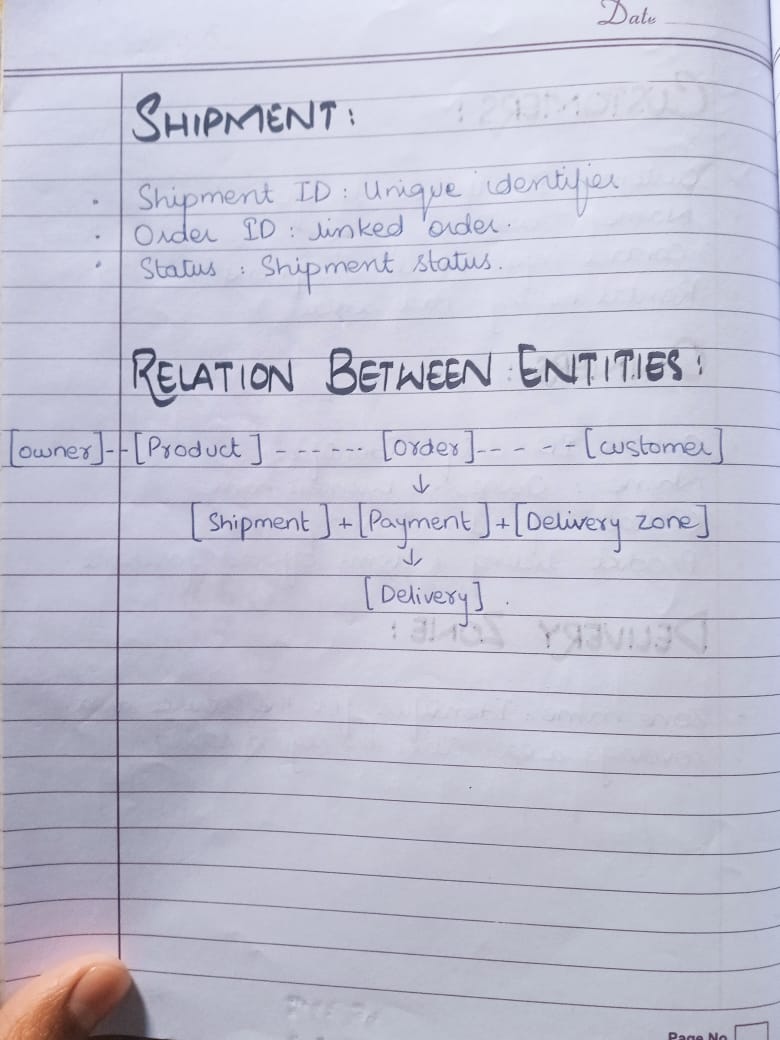 Date
SHIPMENT:
. Shipment ID: Unique identifier
. Order ID: linked order.
. Status: Shipment status.
RELATION BETWEEN ENTITIES:
[owner]--[Product]------[Order]-----[customer]
↓
[Shipment]+[Payment]+[Delivery zone]
↓
[Delivery].
Page No.